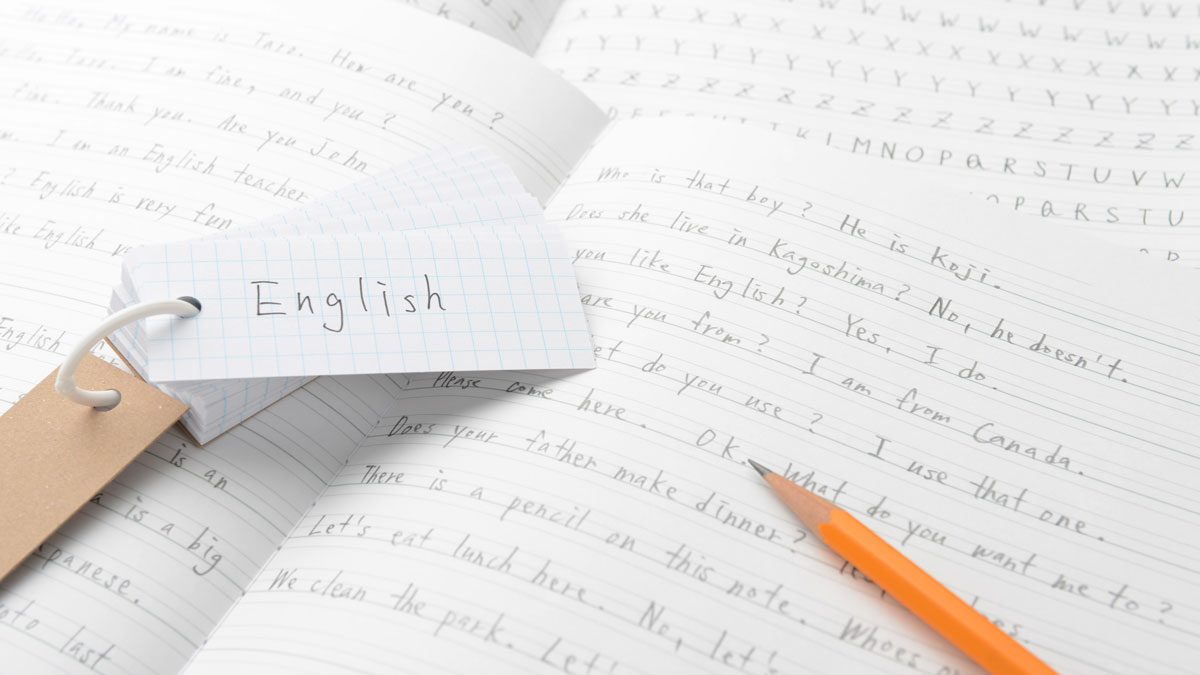 Hello. My name is Taro. How are you?
Hello, Taro. I am fine, and you?
fine. Thank you. Are you John
I am an English teacher
? English is very fun
like English
English
is an
is a big
last
English
W W W W W W W
X X X X X X X X X X X X
Y Y Y Y Y Y Y Y Y Y Y Y
Z Z Z Z Z Z Z Z Z Z Z Z
M N O P Q R S T U V W
P Q R S T U
Who is that boy? He is Koji.
Does she live in Kagoshima? No, he doesn't.
you like English? Yes, I do.
are you from? I am from Canada.
do you use? I use that one.
Please come here. Ok. What do you want me to?
Does your father make dinner?
There is a pencil on this note. Whoes
Let's eat lunch here. No, let's
We clean the park. Let's